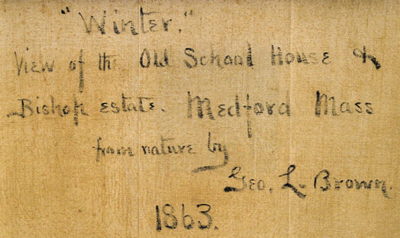 "Winter."
View of the Old School House &
Bishop estate. Medford Mass
from nature by
Geo. L. Brown.
1863.